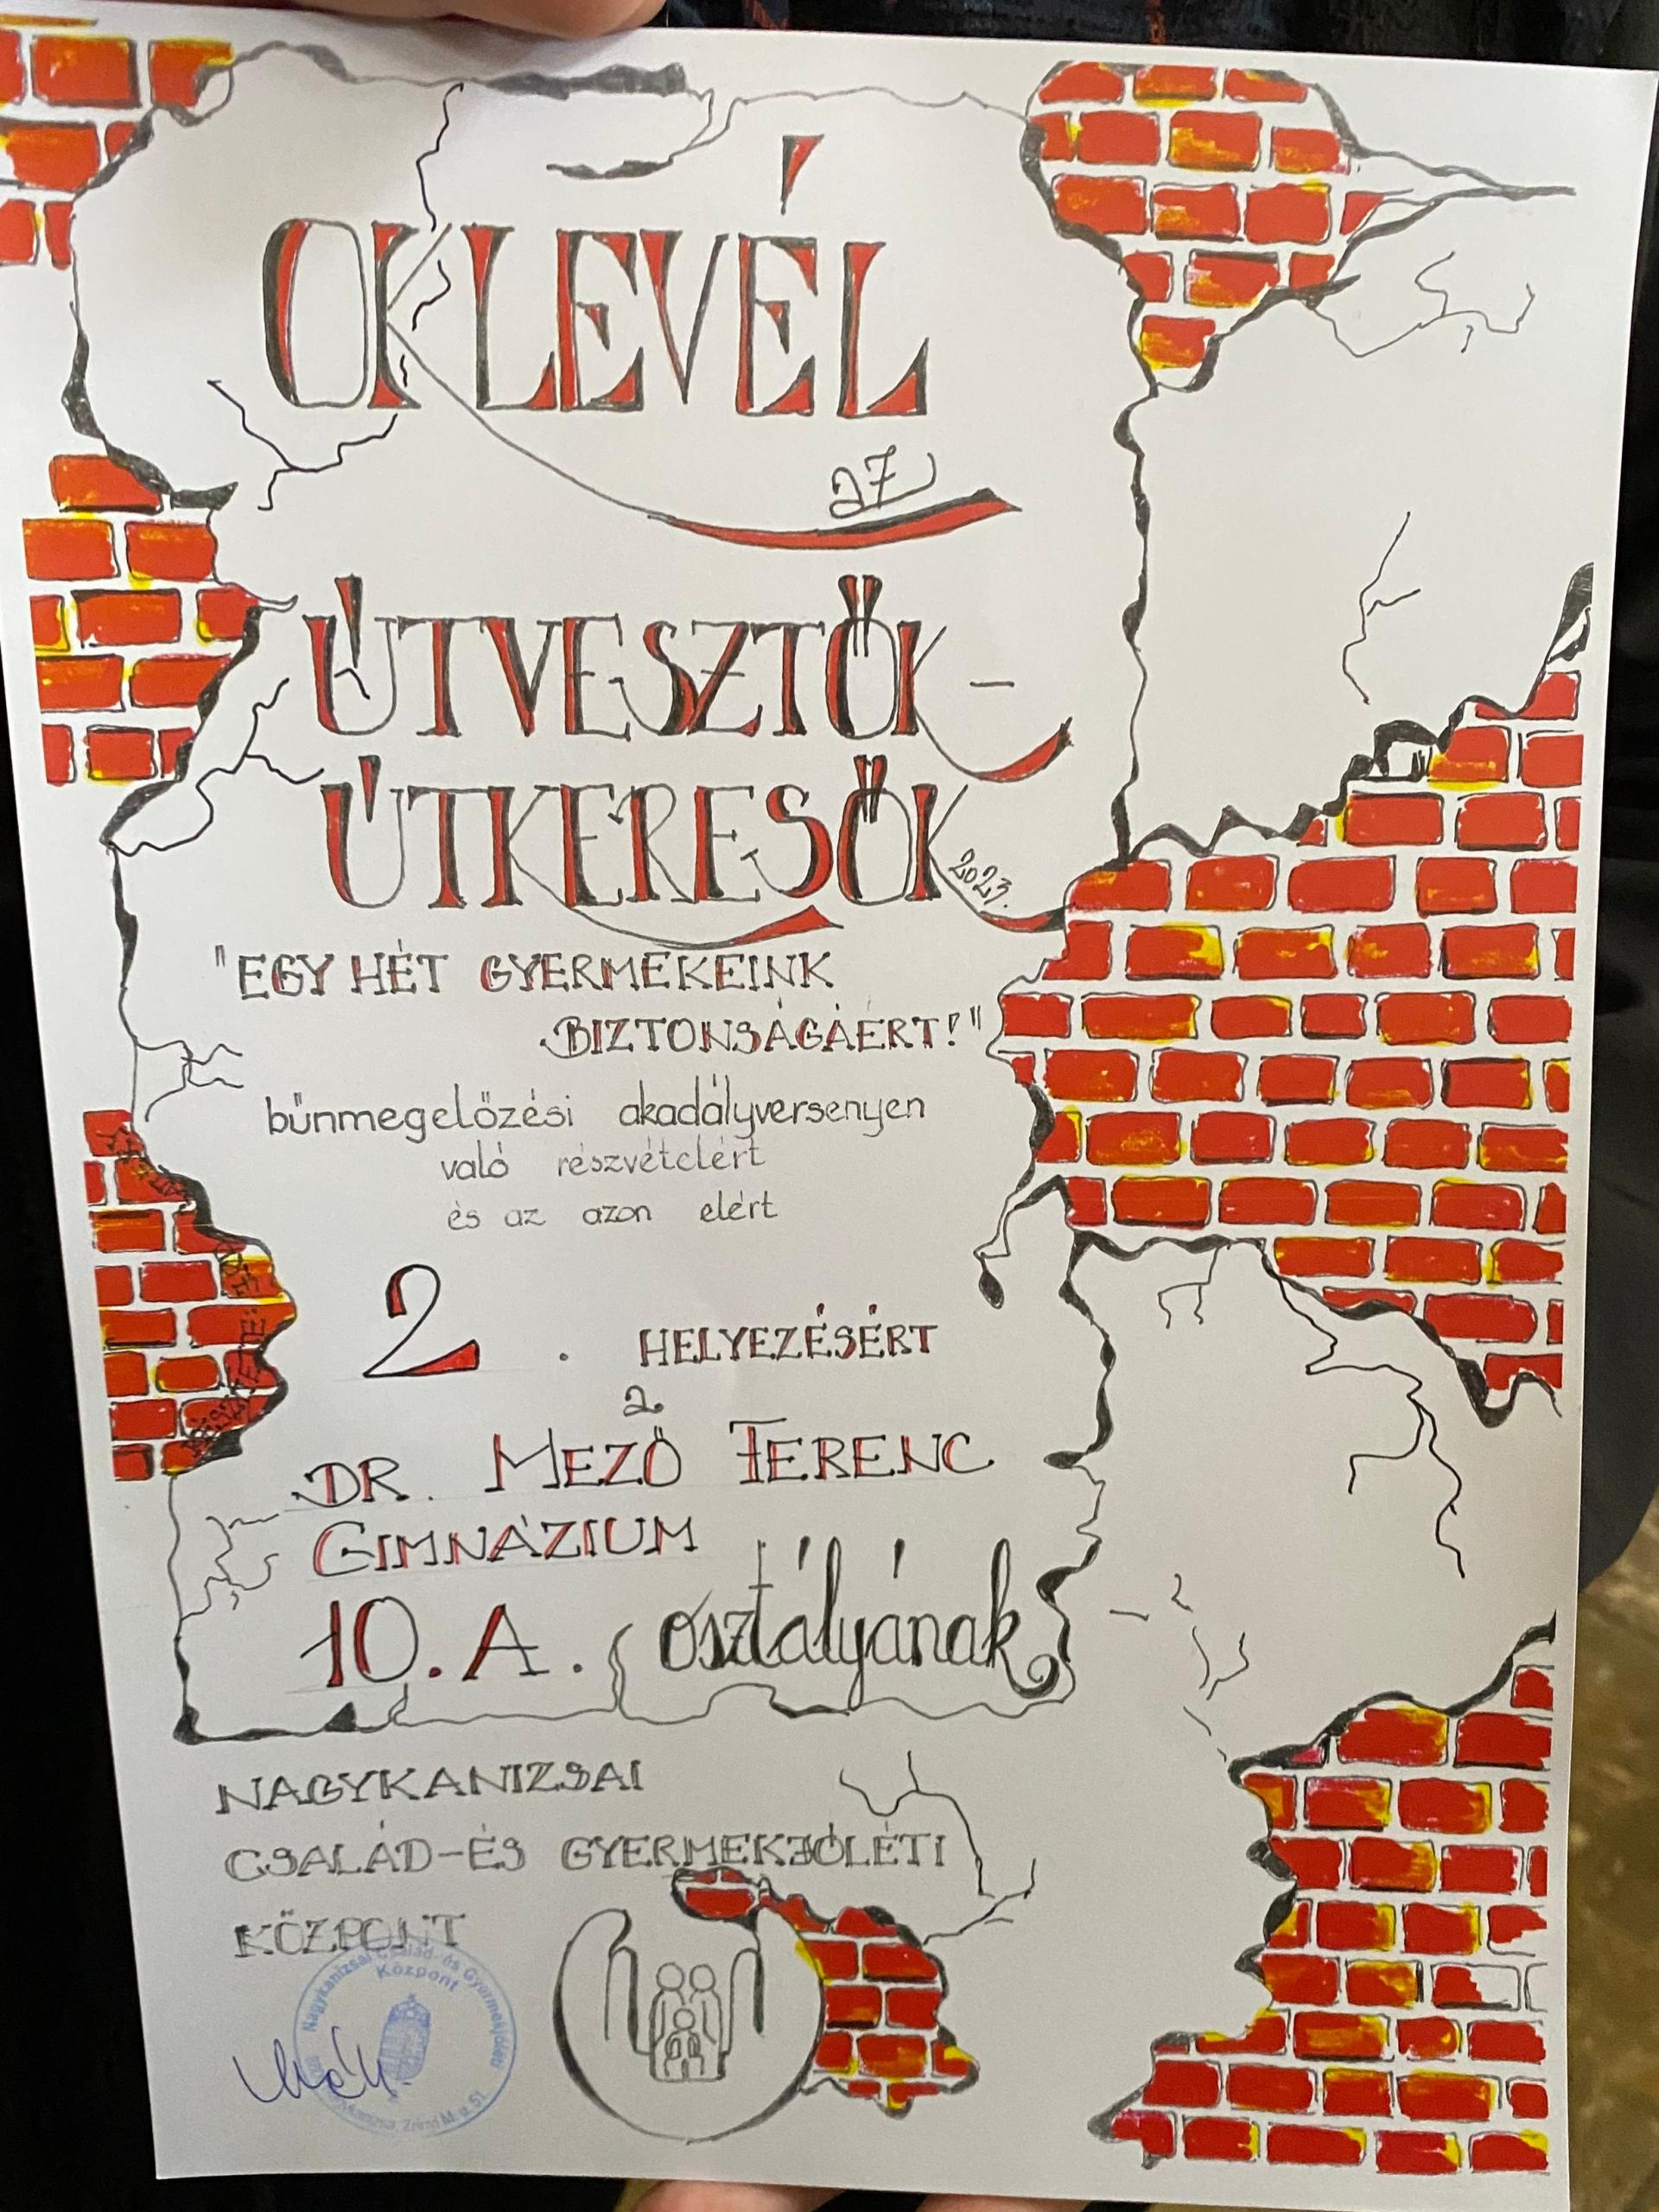 OKLEVÉL
az
ÚTVESZTŐK -
ÚTKERESŐK
2023.
"EGY HÉT GYERMEKEINK
BIZTONSÁGÁÉRT!"
bűnmegelőzési akadályversenyen
való részvételért
és az azon elért
2. HELYEZÉSÉRT
a
DR. MEZŐ FERENC
GIMNÁZIUM
10. A. osztályának
NAGYKANIZSAI
CSALÁD-ÉS GYERMEKJÓLÉTI
KÖZPONT
Nagykanizsai Család- és Gyermekjóléti
Központ
Nagykanizsa, Zrínyi M. u. 51.